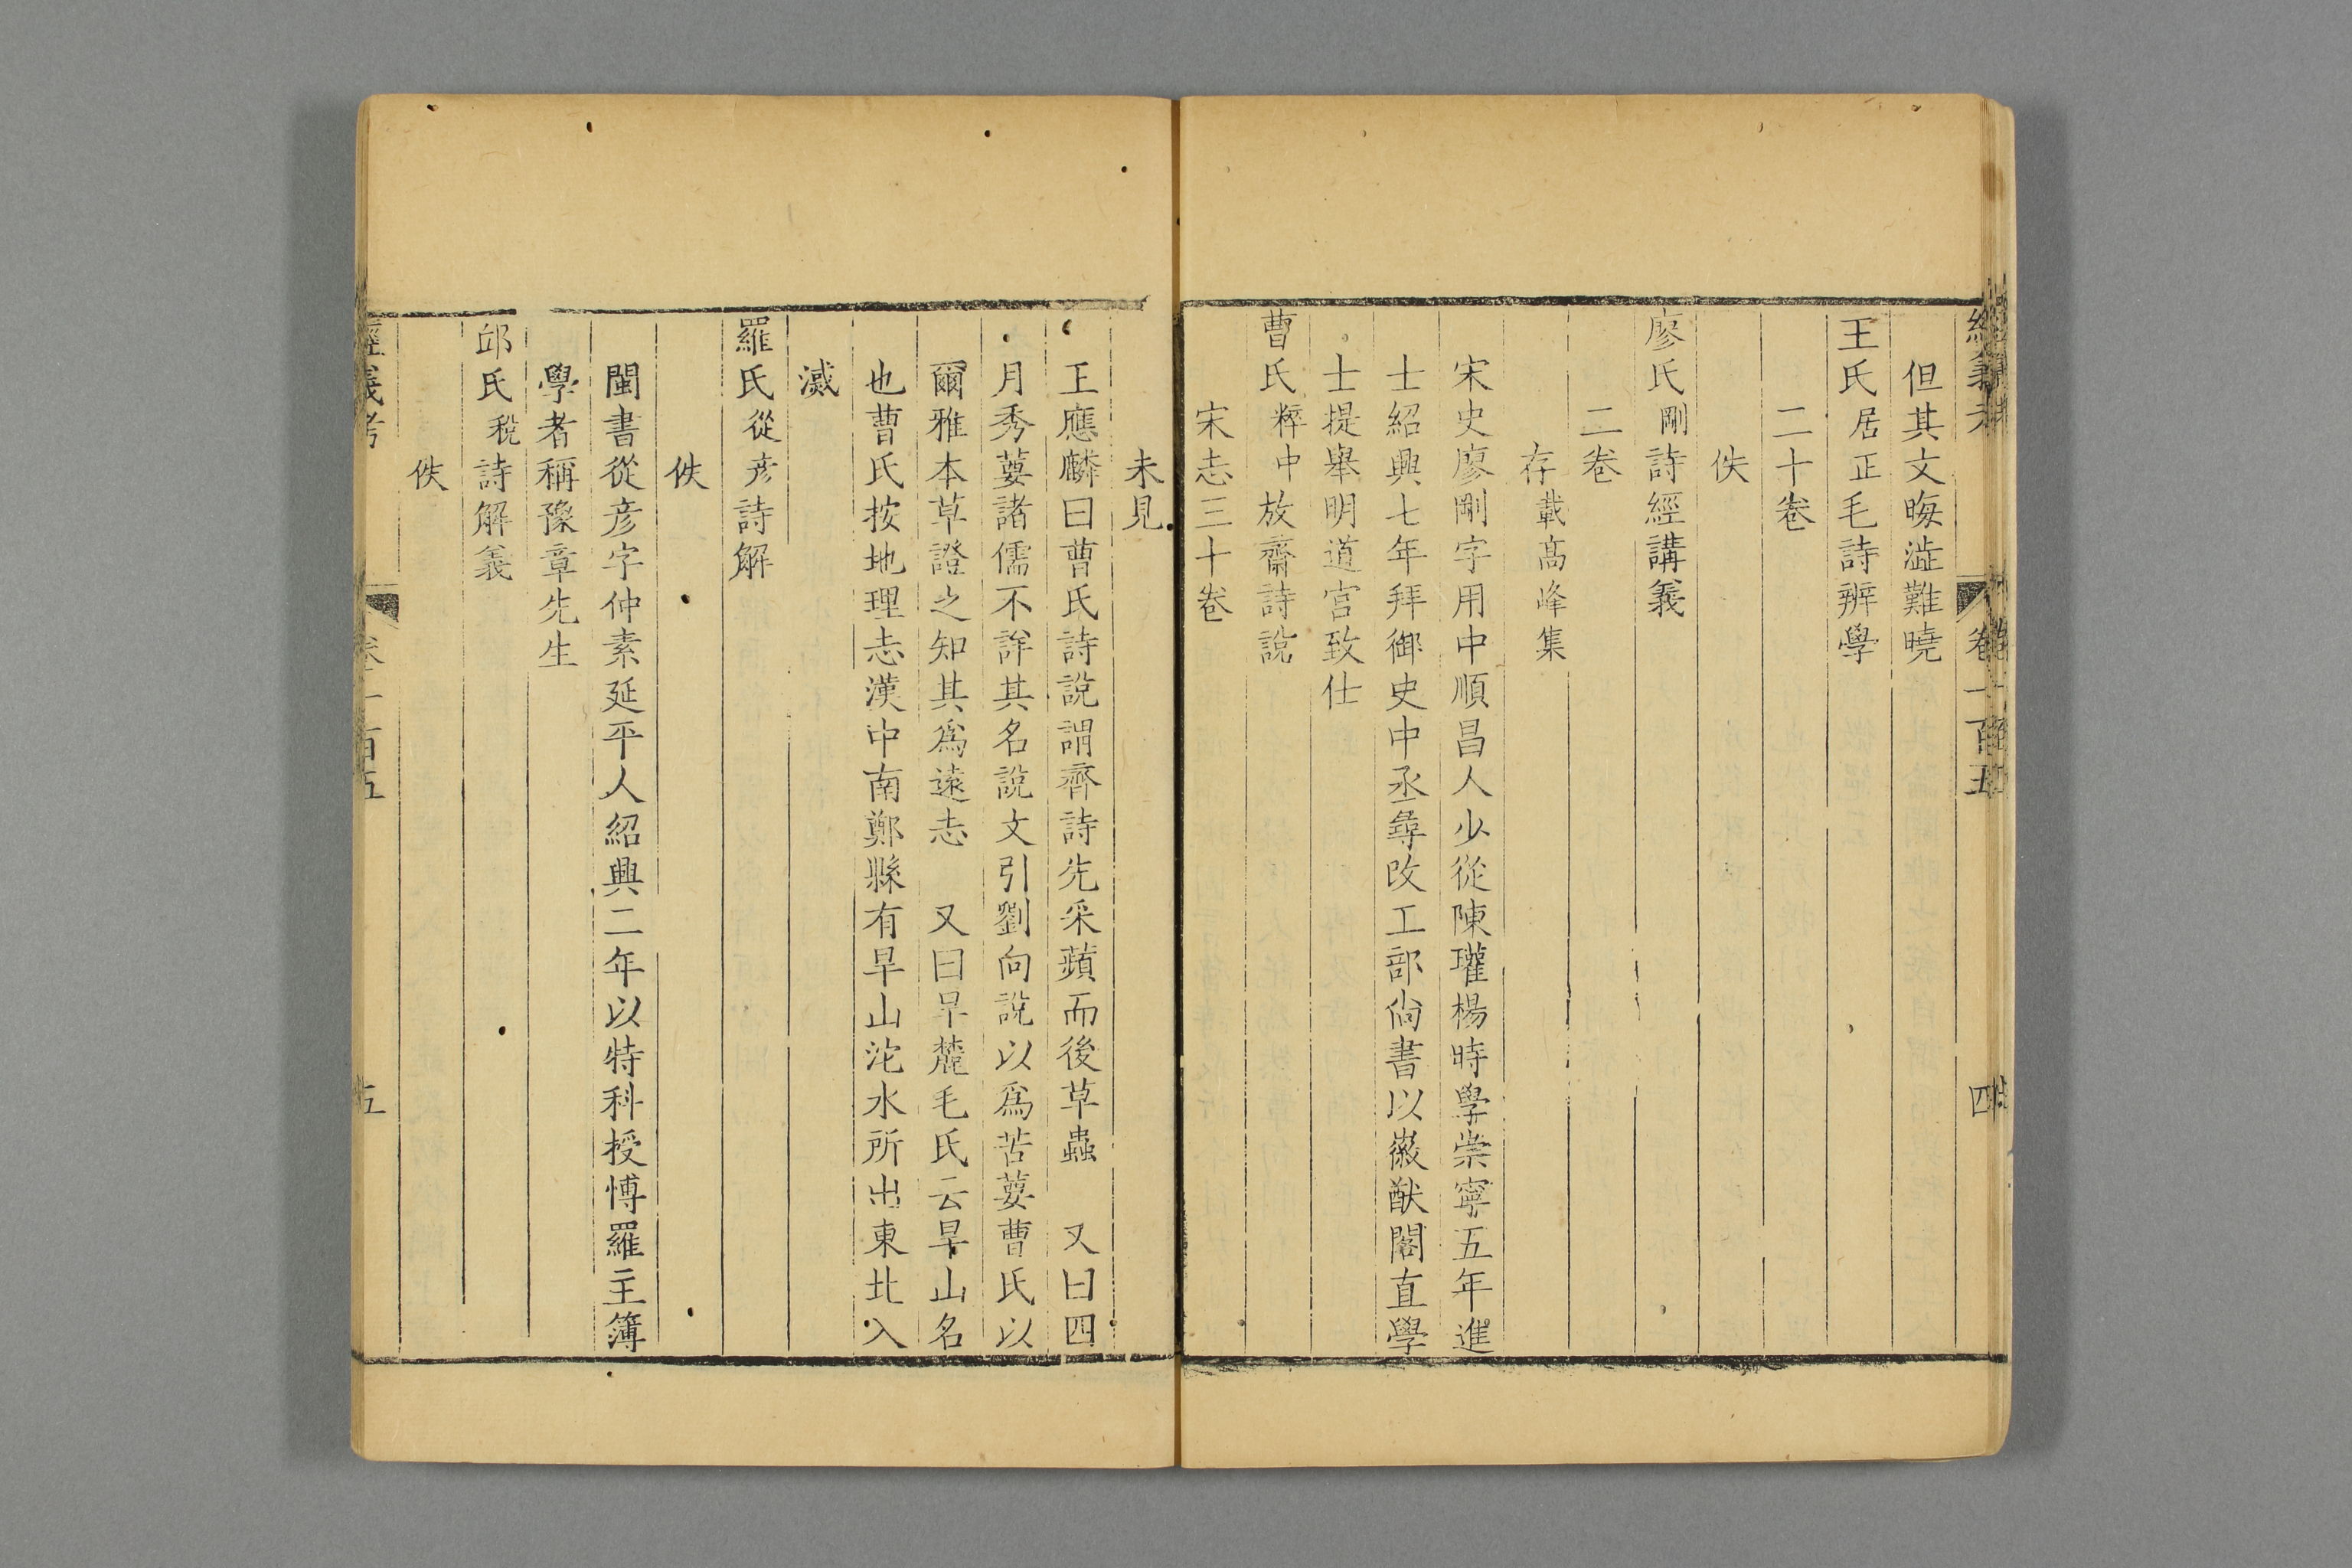 經義考 卷一百五 四
但其文晦澁難曉
王氏居正毛詩辨學
二十卷
佚
廖氏剛詩經講義
二卷
存載髙峰集
宋史廖剛字用中順昌人少從陳瓘楊時學崇寧五年進
士紹興七年拜御史中丞尋改工部尙書以徽猷閣直學
士提舉明道宫致仕
曹氏粹中放齋詩說
宋志三十卷
未見
王應麟曰曹氏詩說謂齊詩先采蘋而後草蟲 又曰四
月秀葽諸儒不詳其名說文引劉向說以爲苦葽曹氏以
爾雅本草證之知其爲遠志 又曰旱麓毛氏云旱山名
也曹氏按地理志漢中南鄭縣有旱山沱水所出東北入
漢
羅氏從彦詩解
佚
閩書從彦字仲素延平人紹興二年以特科授博羅主簿
學者稱豫章先生
邱氏稅詩解義
佚
經義考 卷一百五 五